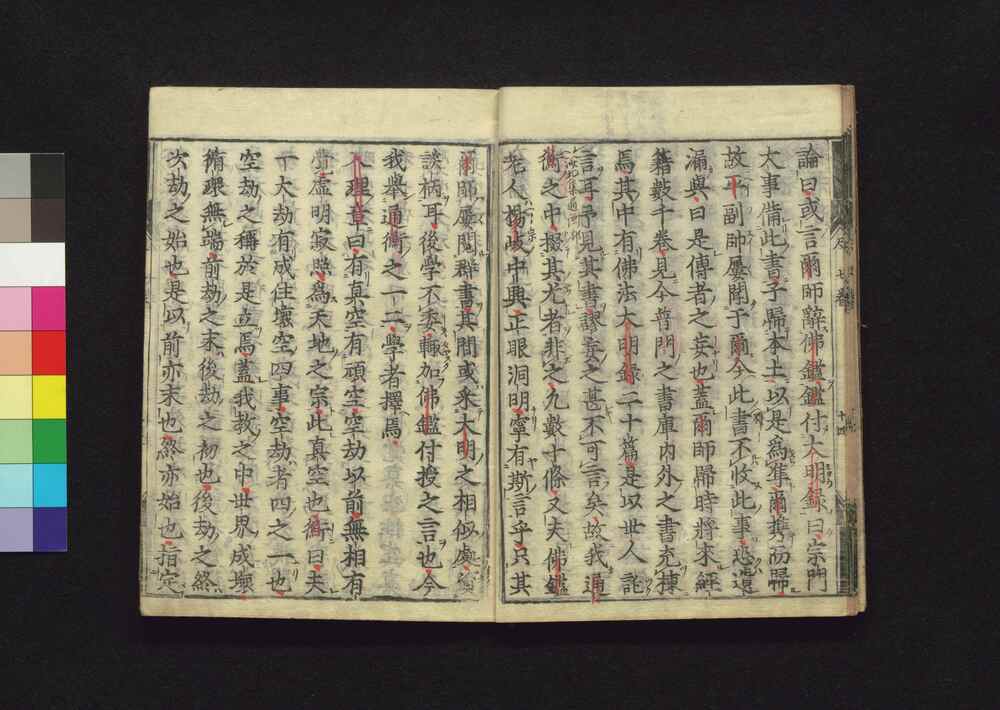 論曰或言爾師辭佛鑑鑑付大明錄曰宗門
大事備此書子歸本土以是為準爾携而歸
故平副帥屢開于爾今此書不收此事恐遺
漏與曰是傳者之妄也蓋爾師歸時將來經
籍數千卷見今普門之書庫內外之書充棟
焉其中有佛法大明錄二十篇是以世人託
言耳予見其書謬妄之甚不可言矣故我通
衡之中掇其尤者非之九數十條又夫佛鑑
老人楊岐中興正眼洞明寧有斯言乎只其
爾師屢閱群書其間或釆大明之相似處
談柄耳後學不委輙加佛鑑付授之言也今
我舉通衡之一二學者擇焉
入理章曰有真空有頑空空劫以前無相有
靈虛明寂照為天地之宗此真空也衡曰夫
一大劫有成住壞空四事空劫者四之一也
空劫之稱於是立焉蓋我教之中世界成壞
循環無端前劫之末後劫之初也後劫之終
次劫之始也是以前亦末也終亦始也指定